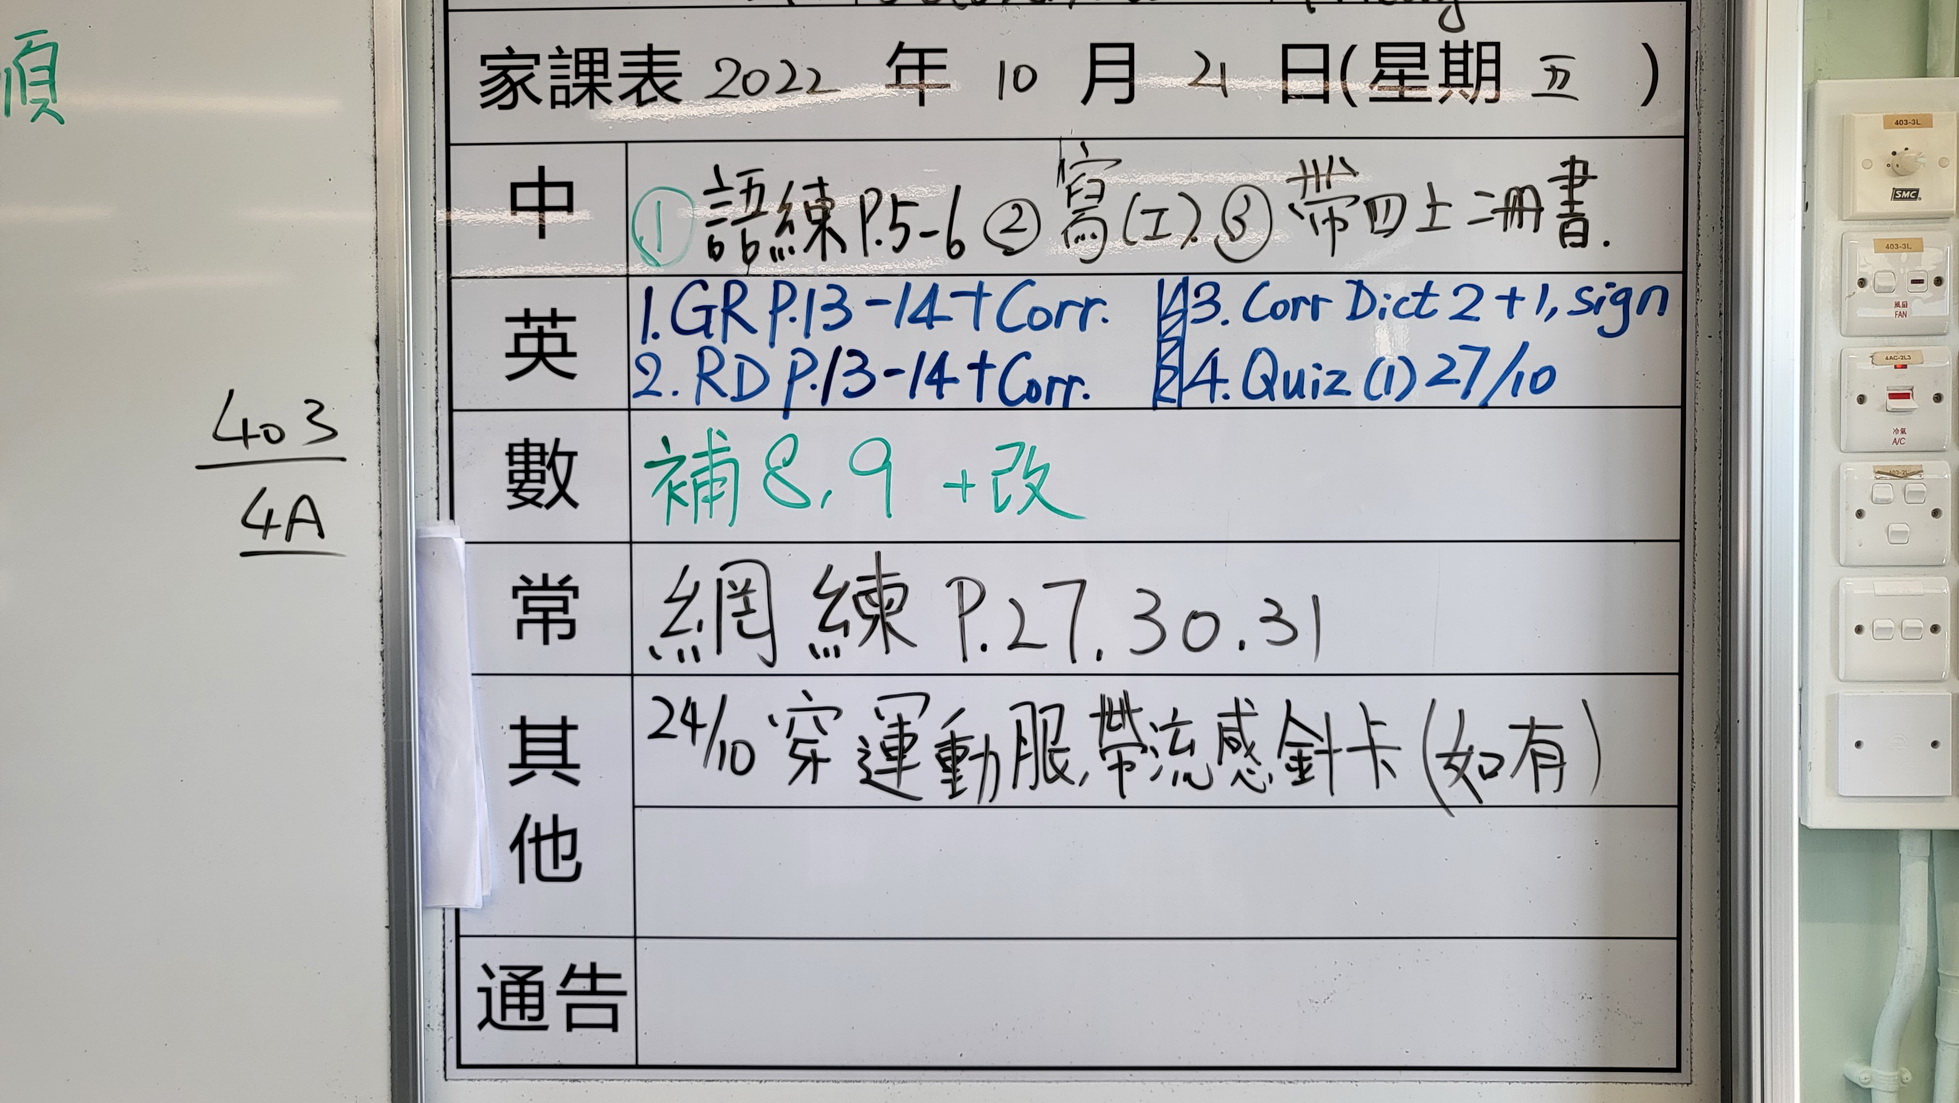 家課表 2022 年 10 月 21 日(星期 五 )
中
① 語練 P.5-6 ② 寫(工). ③ 帶四上二冊書.
英
1. GR P.13-14 + Corr. 3. Corr Dict 2 + 1, sign
2. RD P.13-14 + Corr. 4. Quiz (1) 27/10
數
補 8, 9 + 改
常
網練 P.27. 30. 31
其他
24/10 穿運動服, 帶流感針卡 (如有)
通告
403
4A
403-3L
SMC
403-3L
風扇
FAN
4AC-2L3
冷氣
A/C